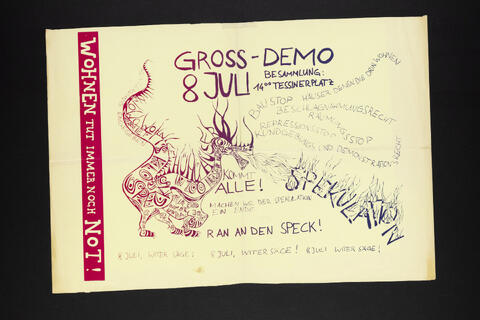 WOHNEN TUT IMMER NOCH NOT!
GROSS-DEMO
8 JULI
BESAMMLUNG:
14⁰⁰ TESSINERPLATZ
BAUSTOP HÄUSER DENEN DIE DRIN WOHNEN
BESCHLAGNAHMUNGSRECHT
RÄUMUNGSSTOP
REPRESSIONSSTOP
KUNDGEBUNGS UND DEMONSTRATIONSRECHT
KOMMT
ALLE!
MACHEN WIR DER SPEKULATION
EIN ENDE
SPEKULATION
RAN AN DEN SPECK!
8 JULI, WITER SÄGE! 8 JULI, WITER SÄGE! 8 JULI WITER SÄGE!